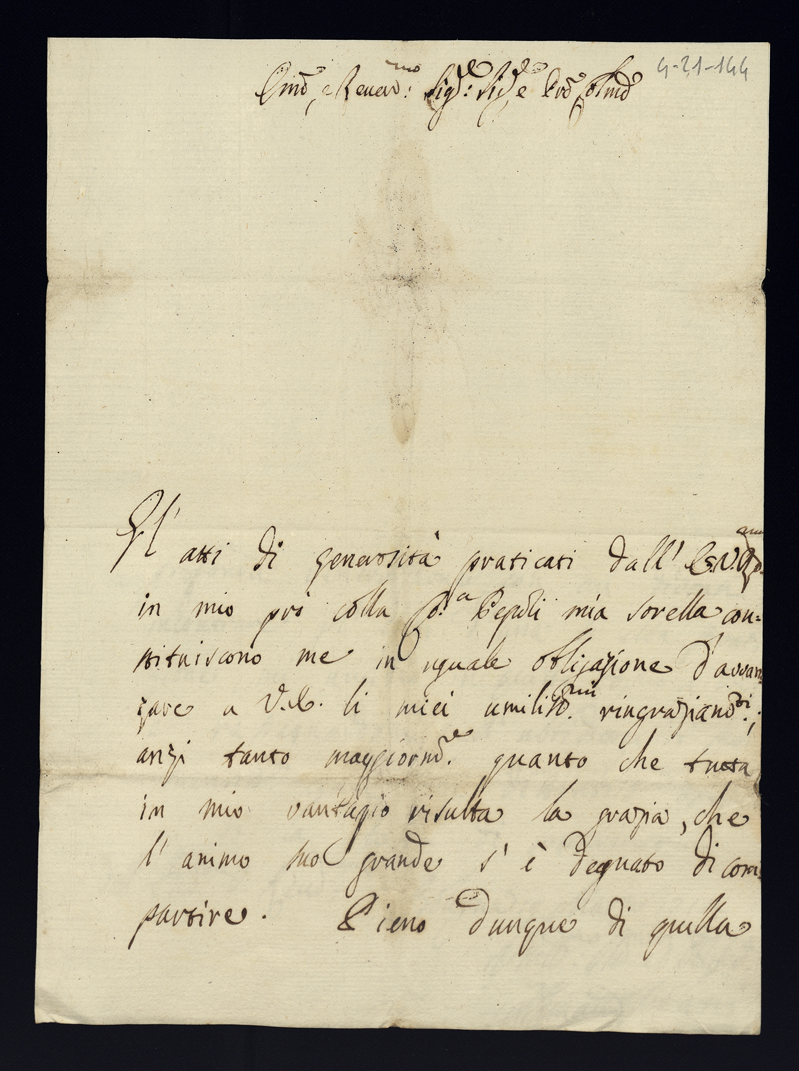 4-21-144
Emo, e Reverd:mo Sigre: Sigre, e Prõe Colmo
Gl' atti di generosità praticati dall' E.V.
in mio prò colla Sig.a Pepoli mia sorella con=
stituiscono me in uguale obbligazione d'avvan
zare a V.E. li miei umiliss.mi ringraziam.ti;
anzi tanto maggiorm.te quanto che tutta
in mio vantagio risulta la grazia, che
l' animo suo grande s' è degnato di com=
partire. Pieno dunque di quella